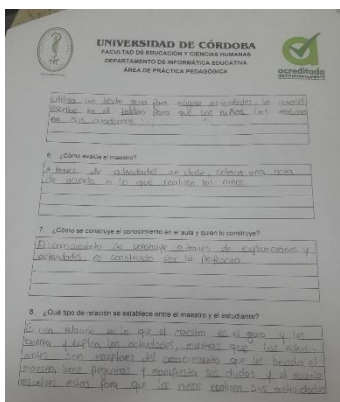 UNIVERSIDAD DE CÓRDOBA
FACULTAD DE EDUCACIÓN Y CIENCIAS HUMANAS
DEPARTAMENTO DE INFORMÁTICA EDUCATIVA
ÁREA DE PRÁCTICA PEDAGÓGICA
acreditada
utiliza un texto guía para asignar actividades, la cuales
escribe en el tablero para que los niños las realicen
en sus cuadernos.
6. ¿Cómo evalúa el maestro?
A traves de actividades en clase, coloca una nota
de acuerdo a lo que realizan los niños
7. ¿Cómo se construye el conocimiento en el aula y quien lo construye?
El conocimiento se construye a traves de explicaciones y
actividades, es construido por la profesora.
8. ¿Qué tipo de relación se establece entre el maestro y el estudiante?
Es una relación en la que el maestro es el guia y les
y explica las actividades, mientras que los estudi-
antes son receptores del conocimiento que les brinda el
maestro, hace preguntas y manifiesta sus dudas y el docente
resuelve estas para que los niños realicen sus actividades